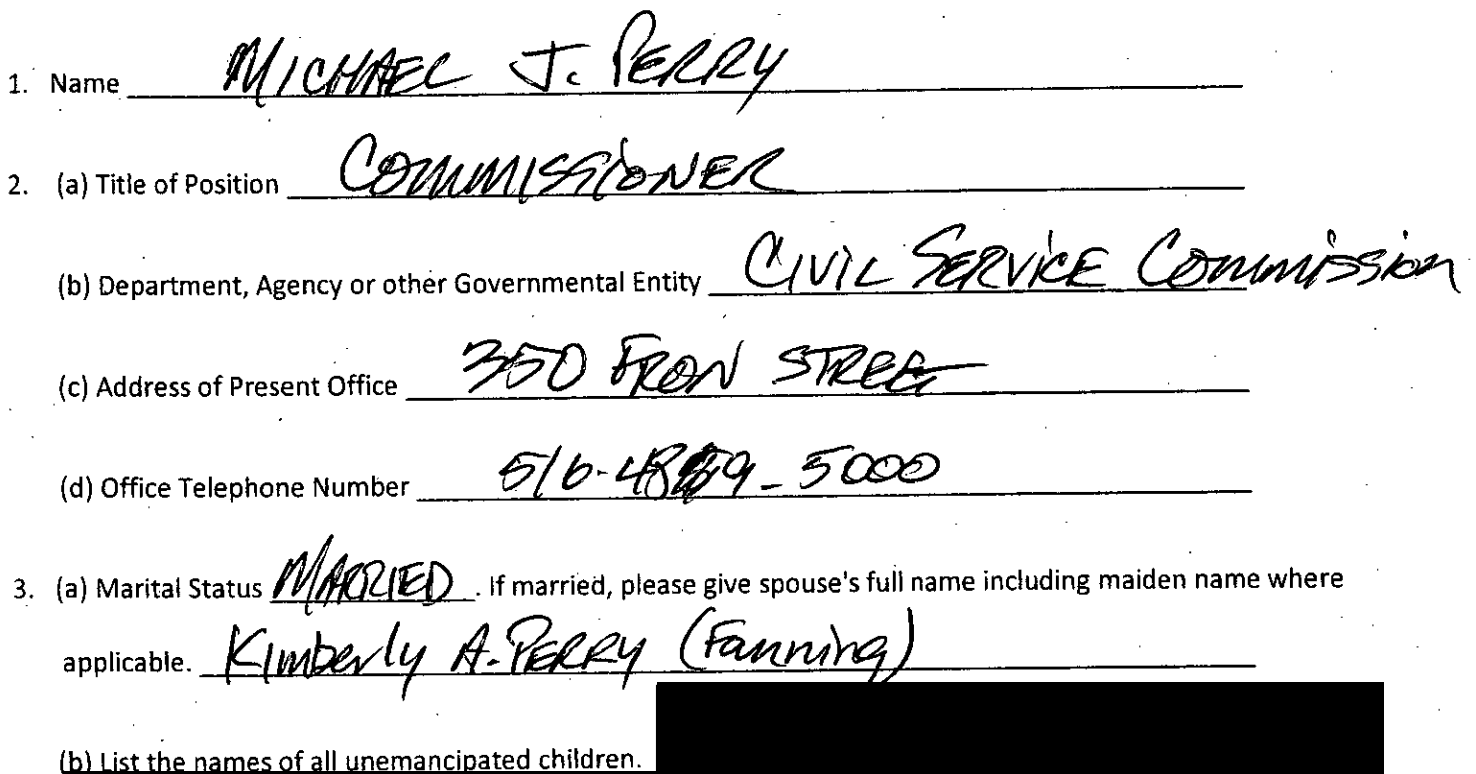 1. Name MICHAEL J. PERRY
2. (a) Title of Position COMMISSIONER
(b) Department, Agency or other Governmental Entity CIVIL SERVICE Commission
(c) Address of Present Office 350 FRON STREET
(d) Office Telephone Number 516- -5000
3. (a) Marital Status MARRIED. If married, please give spouse's full name including maiden name where
applicable. Kimberly A. PERRY (Fanning)
(b) List the names of all unemancipated children.